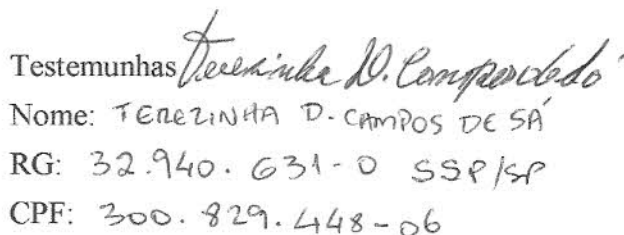 Testemunhas Terezinha D. Campos de Sá
Nome: TEREZINHA D. CAMPOS DE SÁ
RG: 32.940.631-0 SSP/SP
CPF: 300.829.448-06